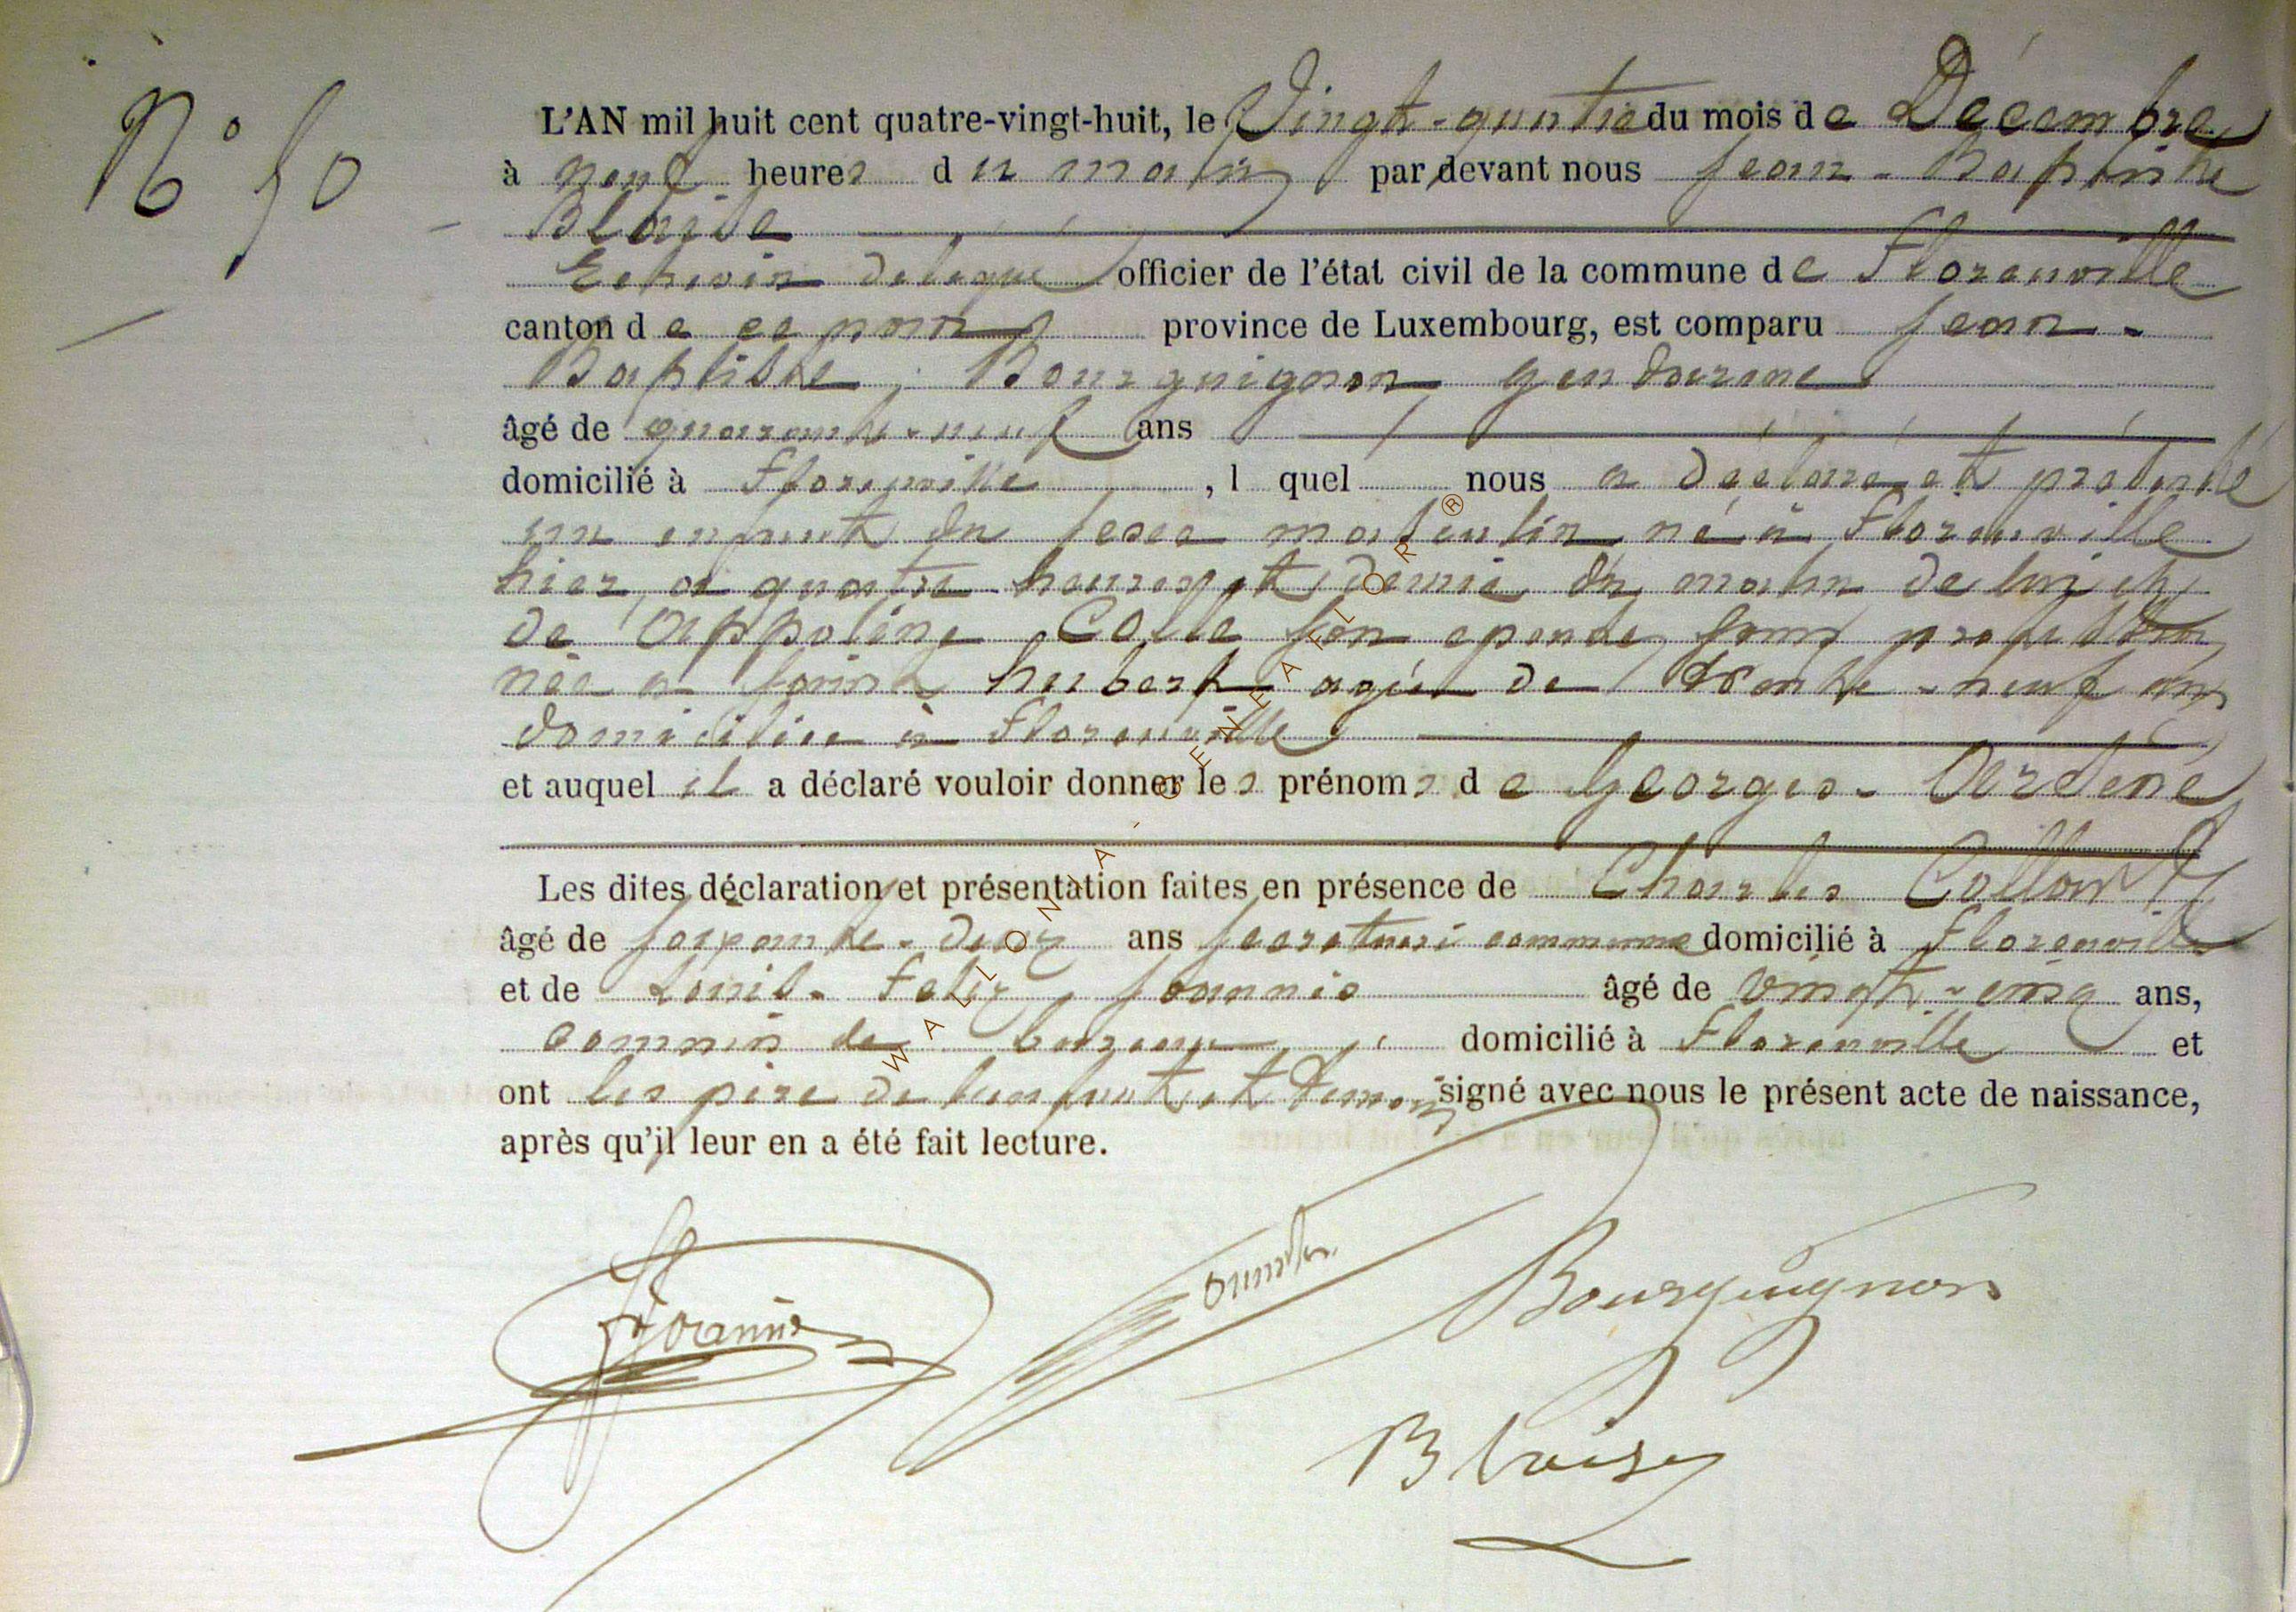 N° 50
L'AN mil huit cent quatre-vingt-huit, le Vingt-quatre du mois de Décembre
à neuf heures du matin par devant nous Jean-Baptiste
Blaise
Echevin délégué officier de l'état civil de la commune de Florenville
canton de ce nom province de Luxembourg, est comparu Jean-
Baptiste, Bourguignon gendarme
âgé de quarante-neuf ans
domicilié à Florenville, l quel nous a déclaré et présenté
un enfant du sexe masculin né à Florenville
hier, à quatre heures et demie du matin de lui et
de Appoline Colle son epouse, sans profession
née a Saint hubert agée de trente-neuf ans
domiciliée à Florenville
et auquel il a déclaré vouloir donner les prénoms de Georges-
Les dites déclaration et présentation faites en présence de Charles
âgé de soixante-deux ans secretaire domicilié à Florenville
et de Louis-Felix Joannis âgé de vingt-cinq ans,
commis de bureau domicilié à Florenville et
ont les père de l'enfant et temoins signé avec nous le présent acte de naissance,
après qu'il leur en a été fait lecture.
Joannis
Bourguignon
Blaise
WALLONIA - GENEAFLOR ®